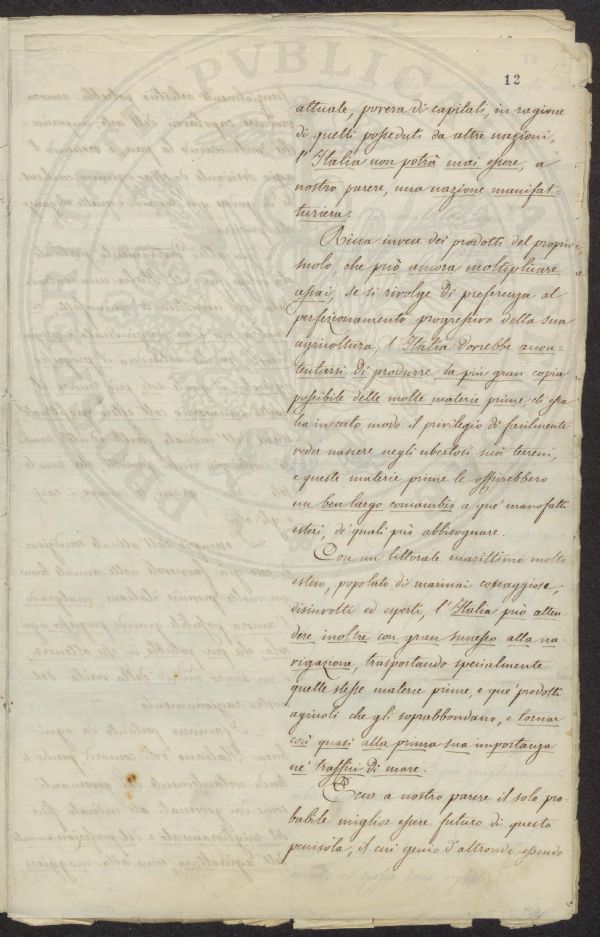 12
attuale, povera di capitali, in ragione
di quelli posseduti da altre nazioni,
l'Italia non potrà mai essere, a
nostro parere, una nazione manifat-
turiera.
Ricca invece dei prodotti del proprio
suolo, che può ancora moltiplicare
assai, se si rivolge di preferenza al
perfezionamento progressivo della sua
agricoltura, l'Italia dovrebbe accon-
tentarsi di produrre la più gran copia
possibile delle molte materie prime ch'essa
ha in certo modo il privilegio di facilmente
veder nascere negli ubertosi suoi terreni,
e queste materie prime le offrirebbero
un ben largo concambio a que' manofatti
esteri, de' quali può abbisognare.
Con un littorale marittimo molto
esteso, popolato di marinai coraggiosi,
disinvolti ed esperti, l'Italia può atten-
dere inoltre con gran successo alla na-
vigazione, trasportando specialmente
quelle stesse materie prime, e que' prodotti
agricoli che gli soprabbondano, e tornar
così quasi alla prima sua importanza
ne' traffici di mare.
Ecco a nostro parere il solo pro-
babile miglior essere futuro di questa
penisola, il cui genio d'altronde essendo